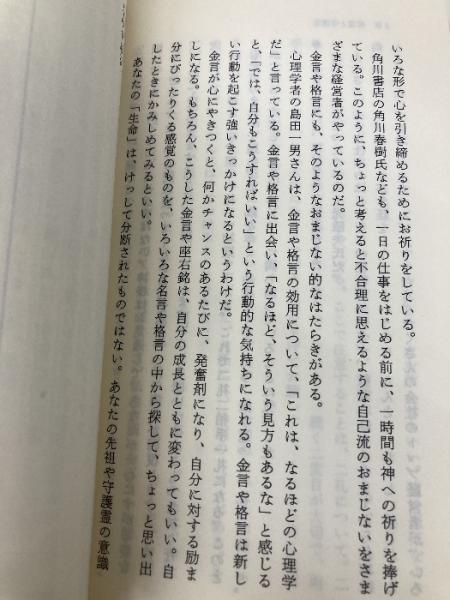 いろな形で心を引き締めるためにお祈りをしている。
角川書店の角川春樹氏なども、一日の仕事をはじめる前に、一時間も神への祈りを捧げ
ている。このように、ちょっと考えると不合理に思えるような自己流のおまじないをさま
ざまな経営者がやっているのだ。
金言や格言にも、そのようなおまじない的なはたらきがある。
心理学者の島田一男さんは、金言や格言の効用について、「これは、なるほどの心理学
だ」と言っている。金言や格言に出会い、「なるほど、そういう見方もあるな」と感じる
と、「では、自分もこうすればいい」という行動的な気持ちになれる。金言や格言は新し
い行動を起こす強いきっかけになるというわけだ。
金言が心にやきつくと、何かチャンスのあるたびに、発奮剤になり、自分に対する励ま
しになる。もちろん、こうした金言や座右銘は、自分の成長とともに変わってもいい。自
分にぴったりくる感覚のものを、いろいろな名言や格言の中から探して、ちょっと思い出
したときにかみしめてみるといい。
あなたの「生命」は、けっして分断されたものではない。あなたの先祖や守護霊の意識